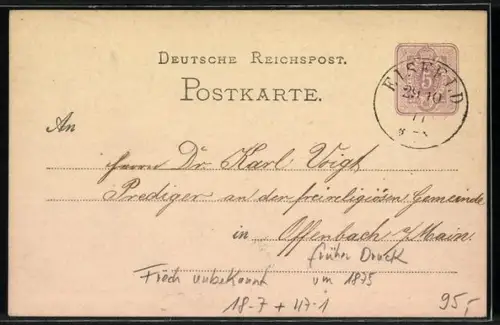 DEUTSCHE REICHSPOST.
POSTKARTE.
5
EISFELD
29 10
77
An
Herrn Dr. Karl Voigt
Prediger an der freireligiösen Gemeinde
in Offenbach a/Main.
früher Druck
Fröch unbekannt um 1875
18-7 + 47-1
95,-